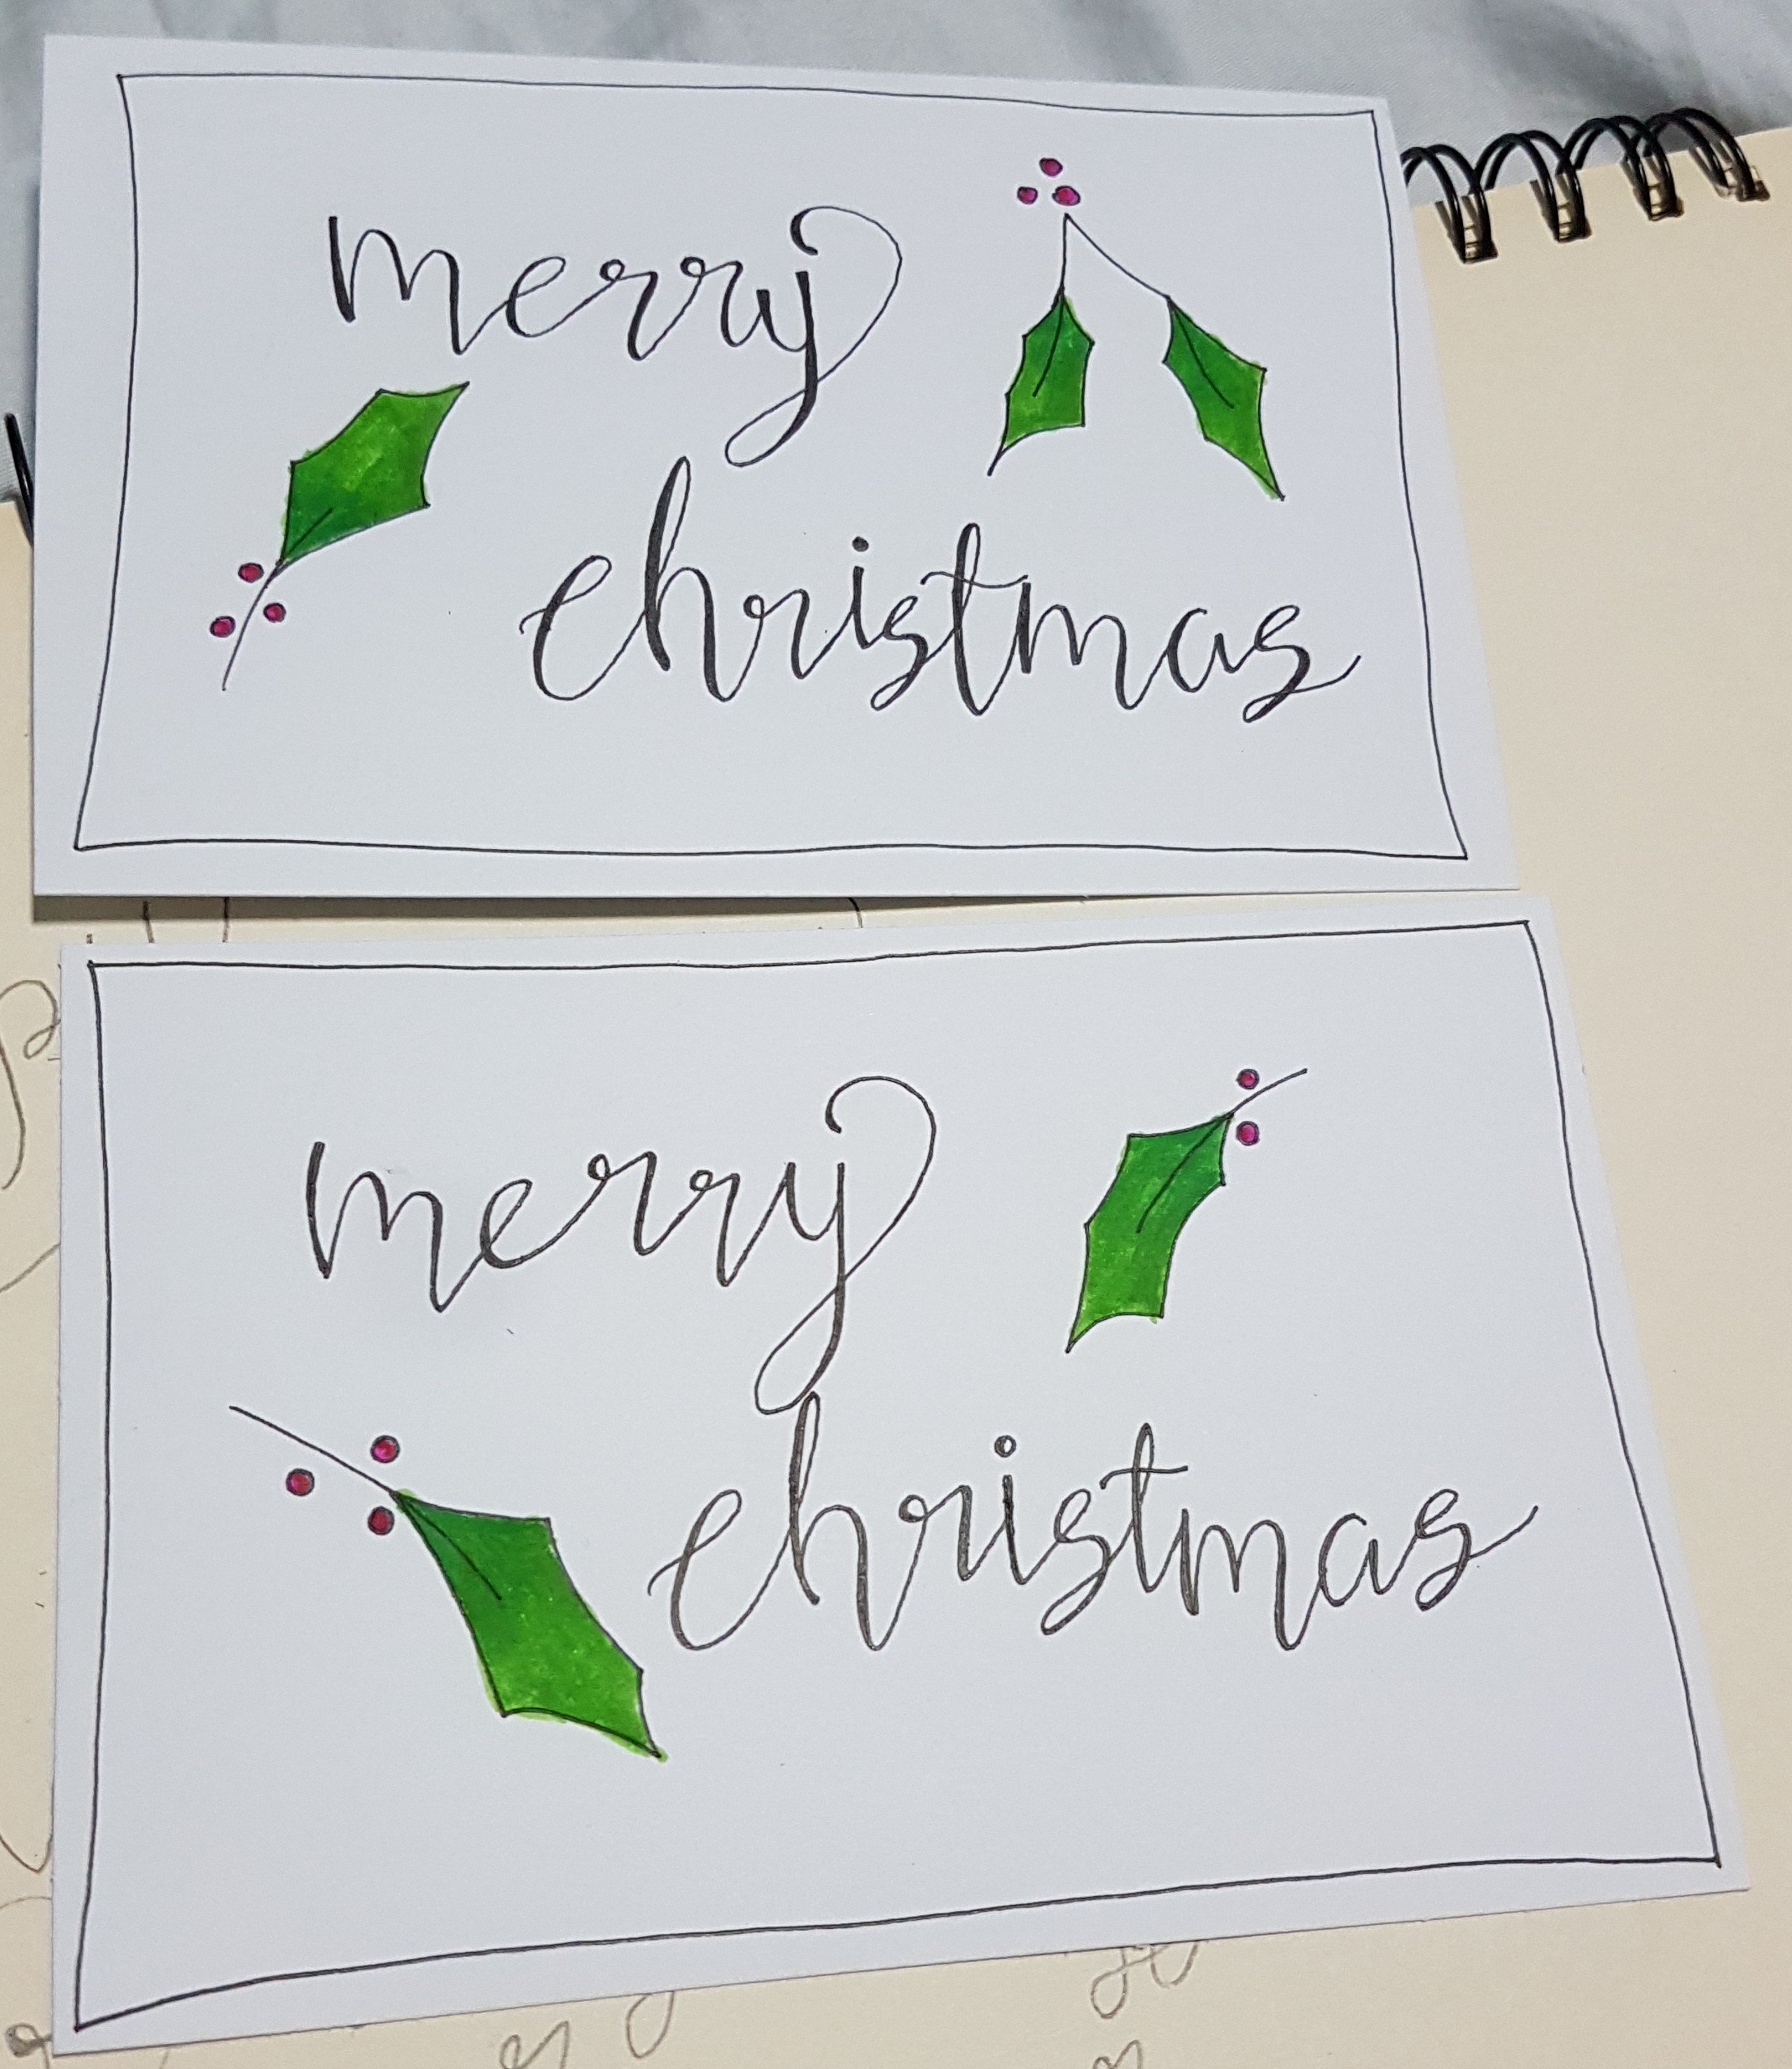 merry
christmas
merry
christmas